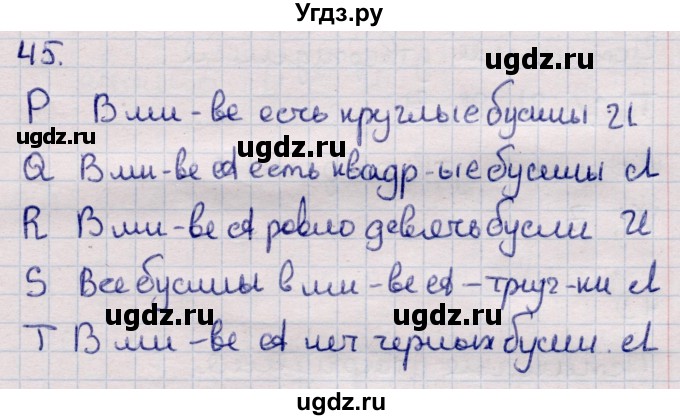 Угдз.ру
45.
ugdz.ru
P В мн-ве есть круглые бусины И
ugdz.ru
ugdz.ru
Q В мн-ве А есть квадр-ые бусины Л
R В мн-ве А ровно девять бусин И
ugdz.ru
S Все бусины в мн-ве А - треуг-ки Л
ugdz.ru
ugdz.ru
T В мн-ве А нет черных бусин. Л
ugdz.ru